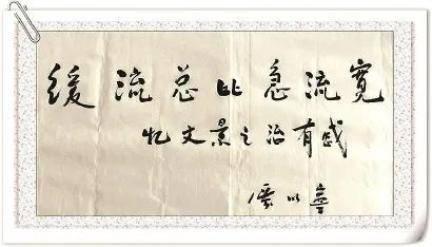 緩流总比急流寬
忆文景之治有感